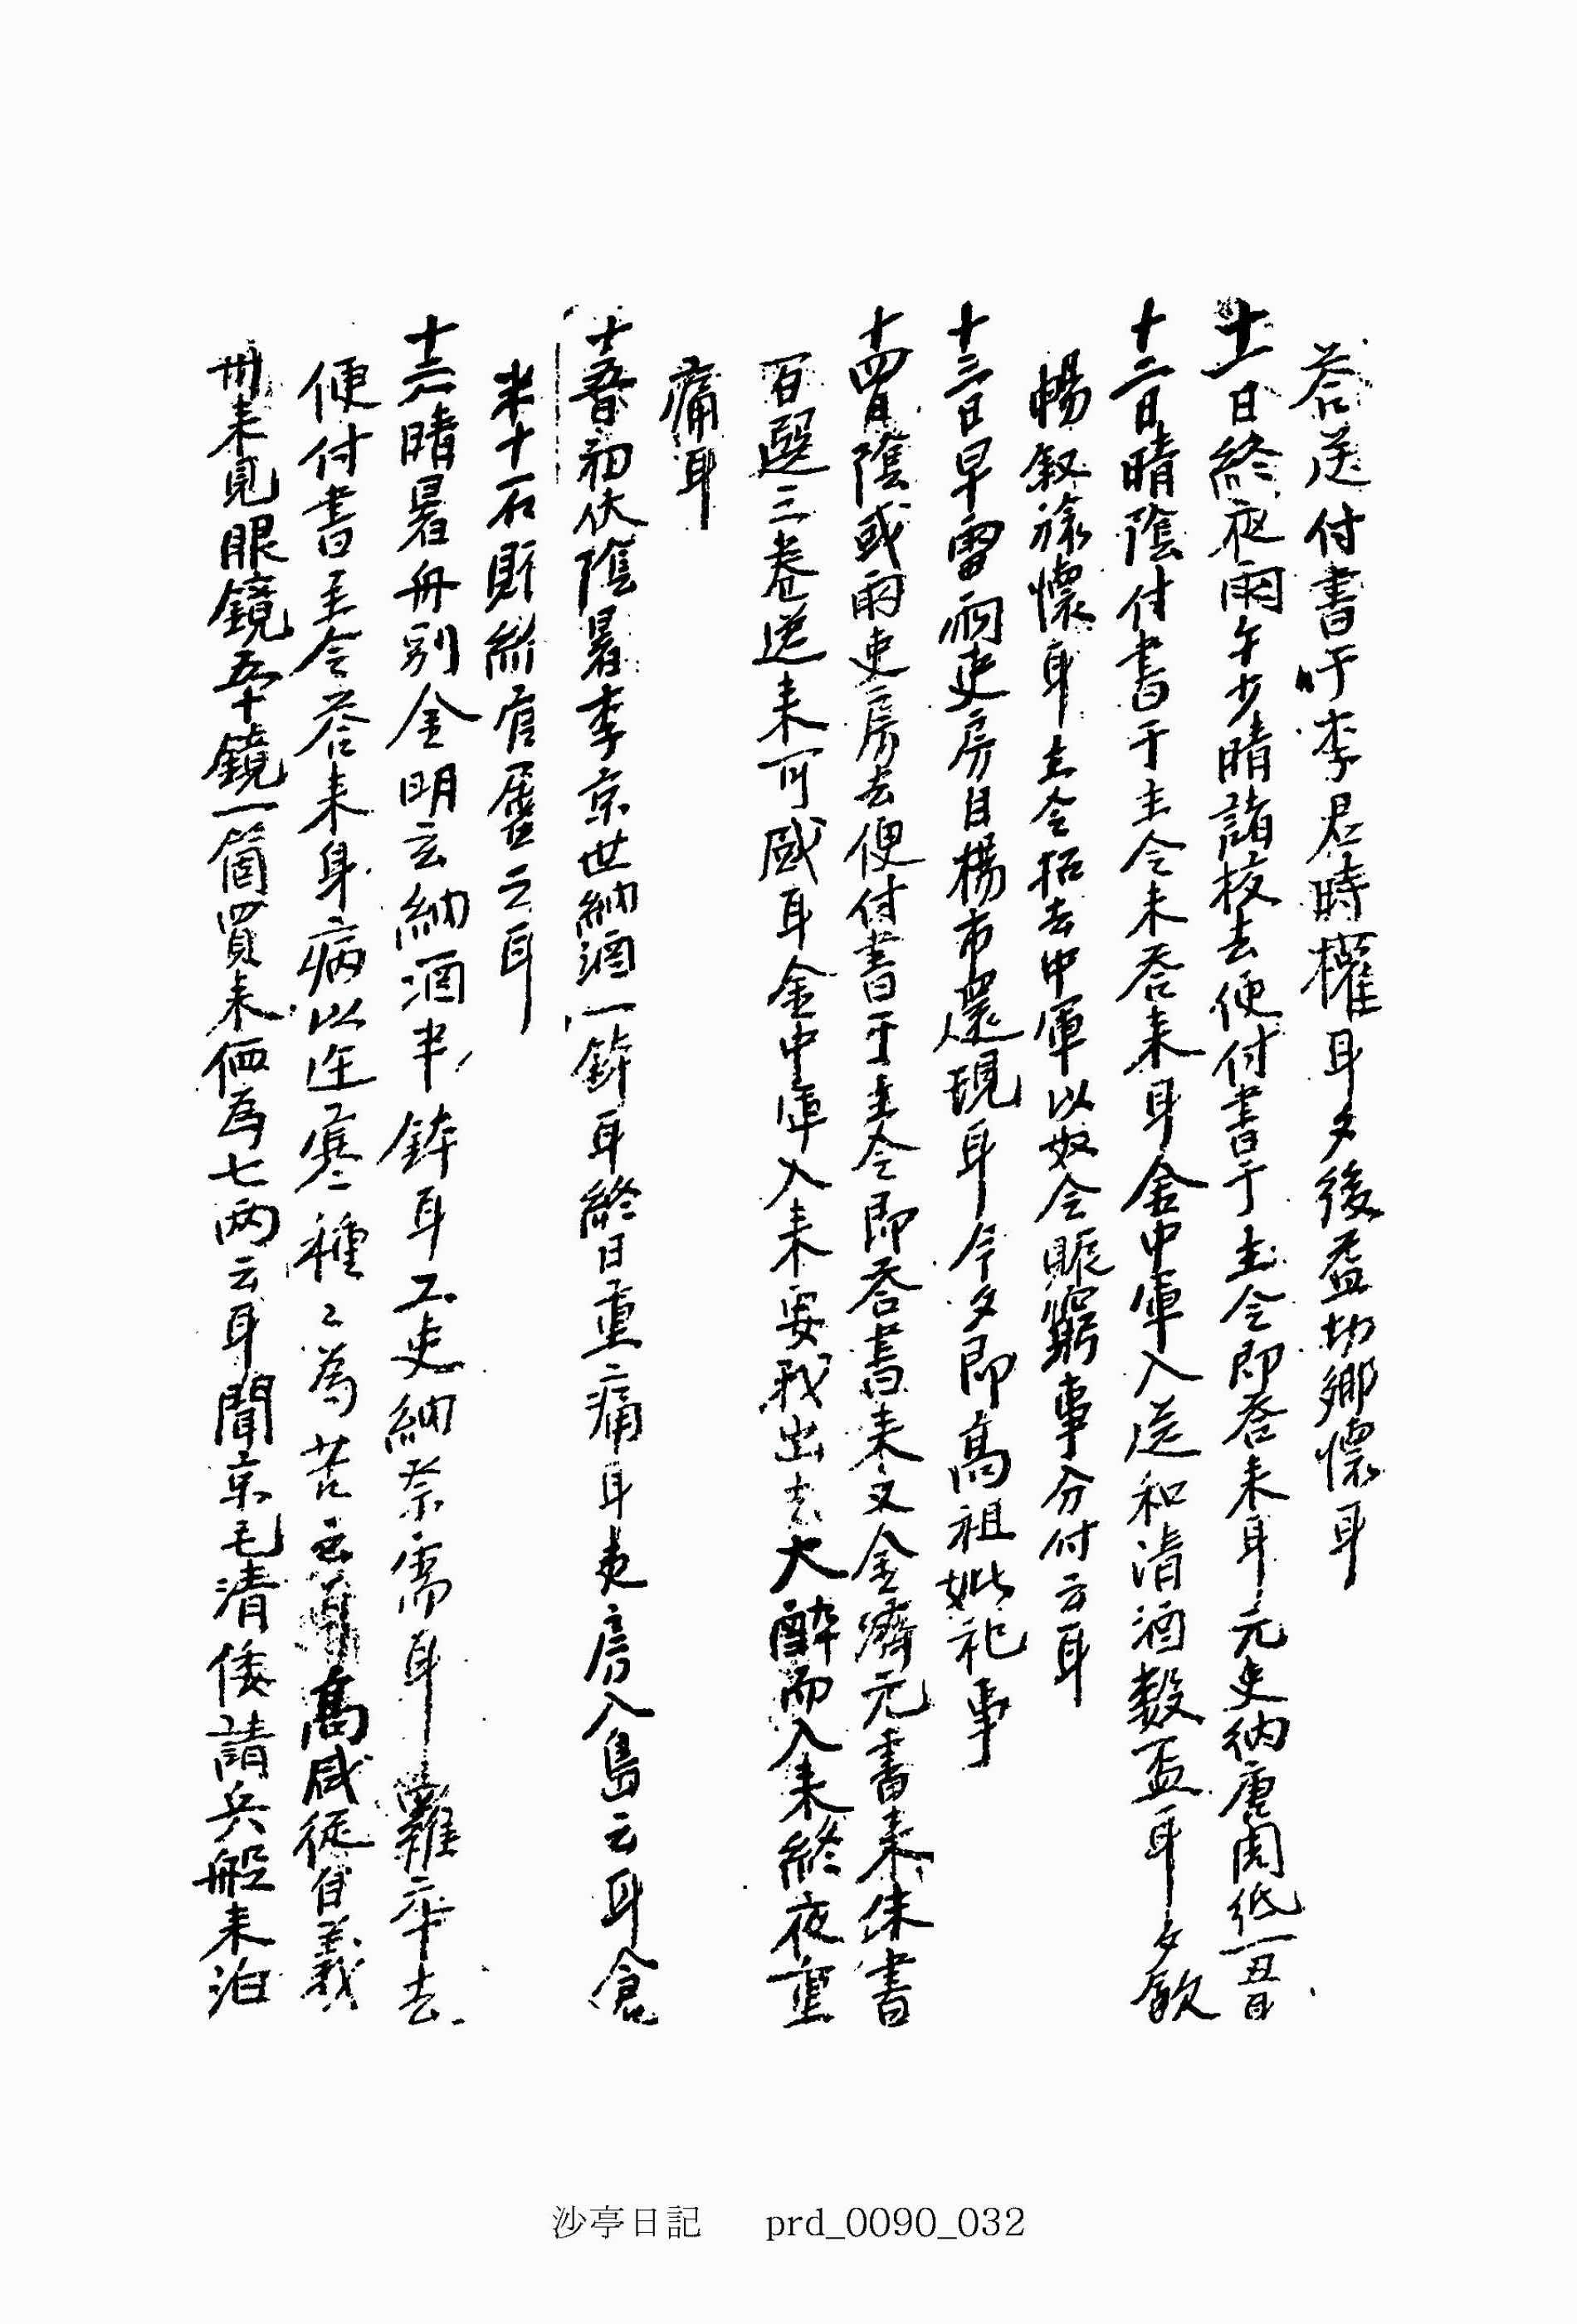 答送付書于李君時權耳夕後益切鄉懷耳
十一日終夜雨午少晴詣校去便付書于主令即答來耳元吏納唐周紙一丑日
十二日晴陰付書于主令未答來耳金中軍入送和清酒數盃耳夕飲
暢敍旅懷耳主令招去中軍以奴令賑窮事分付云耳
十三日早雷雨吏房自楊市還現耳今夕即高祖妣祀事
十四日陰或雨吏房去便付書于主令即答書來又金濟元書來朱書
百選三卷送來可感耳金中軍入來要我出去大醉而入來終夜重
痛耳
十五日初伏陰暑李京世納酒一鉢耳終日重痛耳吏房入島云耳倉
米十石貯給官屬云耳
十六日晴暑舟別金明玄納酒半鉢耳工吏納柰需耳羅卒去
便付書主令答來身病以迕寒種〻為苦云高咸從自義
州來見眼鏡五十鏡一箇買來価為七兩云耳聞京毛清倭請兵船來泊
沙亭日記 prd_0090_032